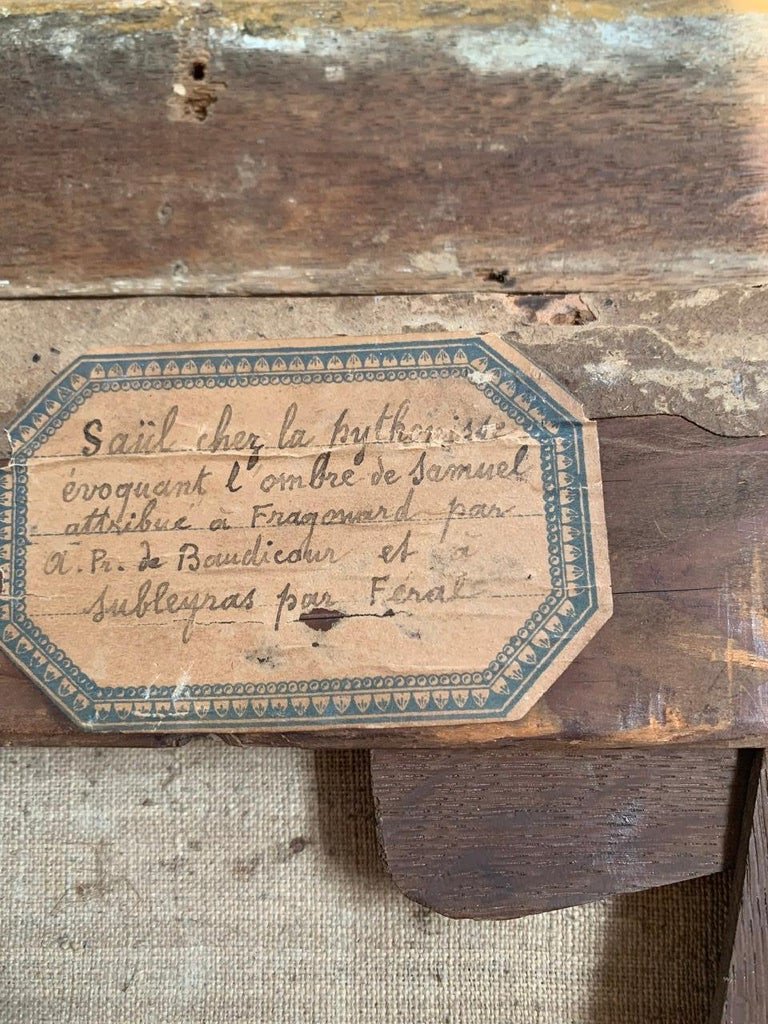 Saül chez la pythonisse
évoquant l'ombre de Samuel
attribué à Fragonard par
A. Pr. de Baudicour et à
Subleyras par Féral